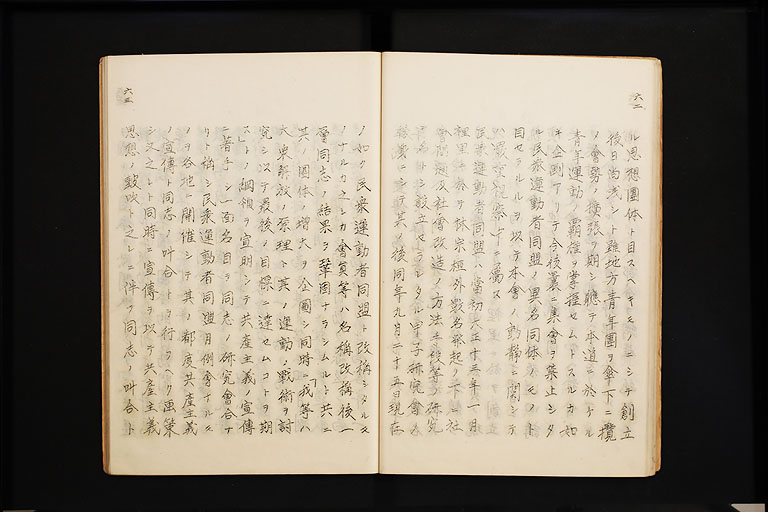 六二
ル思想團体ト目スヘキモノニシテ創立
後日尚浅シト雖地方青年團ヲ傘下ニ攬
メ會勢ノ擴張ヲ期シ聽テ本道ニ於ケル
青年運動ノ覇権ヲ掌握セムトスルカ如
キ企劃アリテ今後裏ニ集會ヲ禁止シタ
ル民衆運動者同盟ノ異名同体ノモノト
目セラルルヲ以テ本會ノ動静ニ関シテ
ハ嚴重視察中ニ屬ス
民衆運動者同盟ハ當初大正十三年一月
程里 林宗桓外数名發起ノ下ニ社
會問題及社會改造ノ方法手段等ヲ研究
目的トシ設立セラレタル甲子研究會
後同年九月二十五日現在
六三
ノ如ク民衆運動者同盟ト改稱シタルモ
ノナルカ之レカ會員等ハ名稱改稱後一
層同志ノ結果ヲ鞏固ナラシムルト共ニ
其ノ團体ノ増大ヲ企圖シ同時ニ「我等ハ
大衆解放ノ原理ト其ノ運動ノ戰術ヲ討
究シ以テ最後ノ目標ニ達セムコトヲ期
ス」トノ綱領ヲ宣明シテ共産主義ノ宣傳
ニ著手シ一面名目ヲ同志ノ研究會合ナ
リト稱シ民衆運動者同盟月例會ナルモ
ノヲ各地ニ開催シテ其ノ都度共産主義
ノ宣傳ト同志ノ叫合トヲ行フヘク画策
シ又之レト同時ニ宣傳ヲ以テ共産主義
思想ノ鼓吹ト之レニ伴フ同志ノ叫合ト